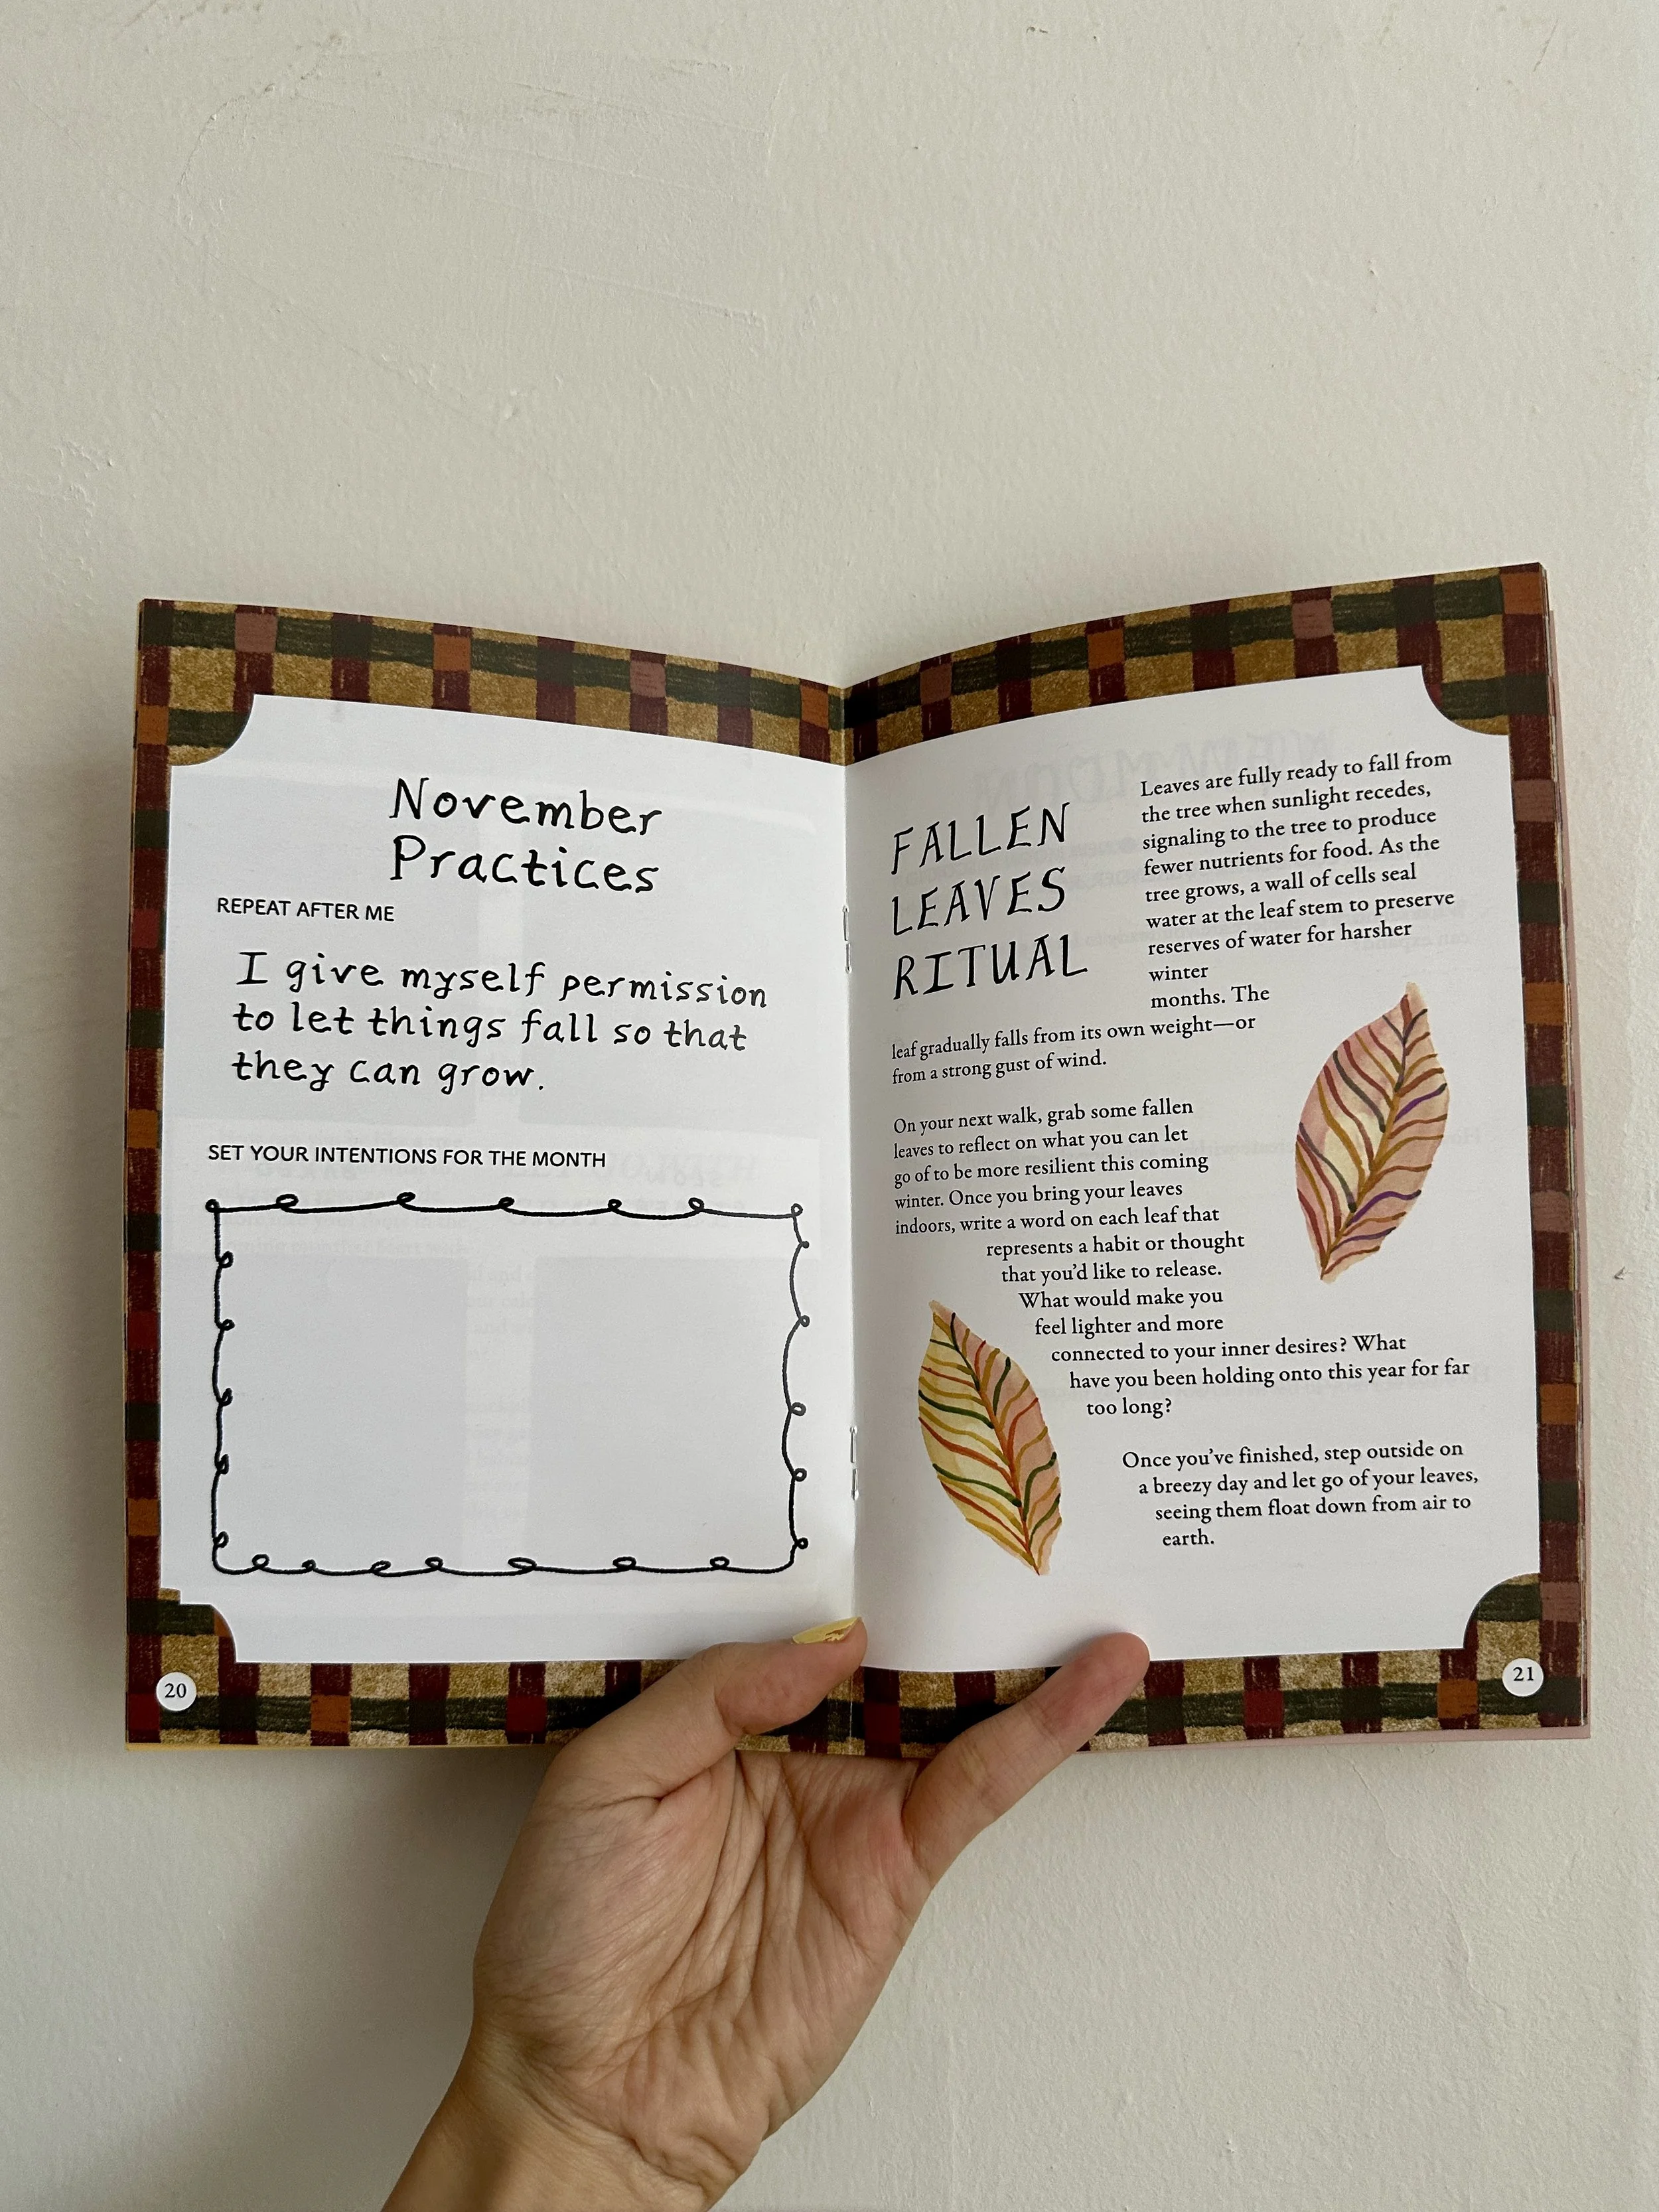 November
Practices
REPEAT AFTER ME
I give myself permission
to let things fall so that
they can grow.
SET YOUR INTENTIONS FOR THE MONTH
20
FALLEN
LEAVES
RITUAL
Leaves are fully ready to fall from
the tree when sunlight recedes,
signaling to the tree to produce
fewer nutrients for food. As the
tree grows, a wall of cells seal
water at the leaf stem to preserve
reserves of water for harsher
winter
months. The
leaf gradually falls from its own weight—or
from a strong gust of wind.
On your next walk, grab some fallen
leaves to reflect on what you can let
go of to be more resilient this coming
winter. Once you bring your leaves
indoors, write a word on each leaf that
represents a habit or thought
that you’d like to release.
What would make you
feel lighter and more
connected to your inner desires? What
have you been holding onto this year for far
too long?
Once you’ve finished, step outside on
a breezy day and let go of your leaves,
seeing them float down from air to
earth.
21